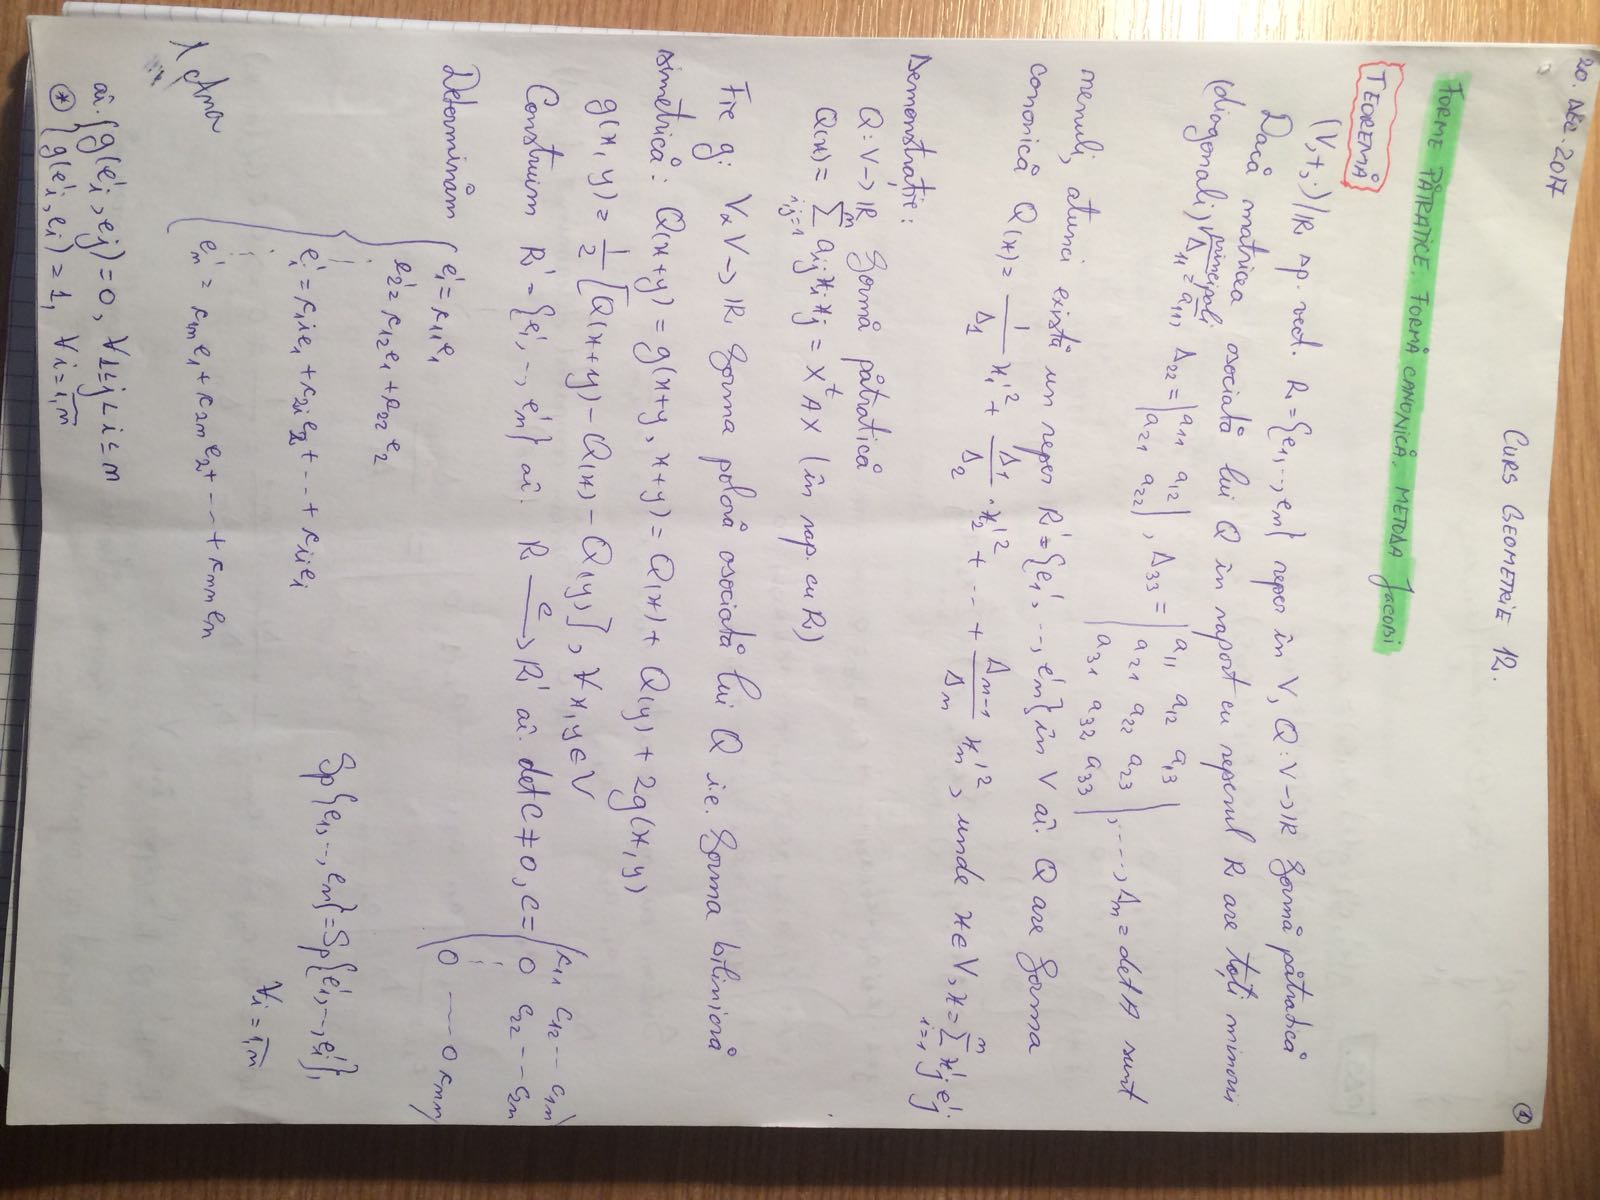 20. Dec. 2017
CURS GEOMETRIE 12.
①
FORME PĂTRATICE. FORMĂ CANONICĂ. METODA Jacobi
TEOREMĂ
(V,+,·)/ℝ sp. vect. R={e1,..,en} reper în V, Q:V→ℝ formă pătratică
Dacă matricea asociată lui Q în raport cu reperul R are toți minorii
(diagonali) principali Δ11=a11, Δ22=|a11 a12; a21 a22|, Δ33=|a11 a12 a13; a21 a22 a23; a31 a32 a33|, ..., Δn=det A sunt
nenuli, atunci există un reper R'={e1',..,en'} în V aî. Q are forma
canonică Q(x) = 1/Δ1 x1'² + Δ1/Δ2 · x2'² + ... + Δn-1/Δn xn'², unde x∈V, x=∑_{i=1}^{n} xj' ej'.
Demonstrație:
Q:V→ℝ formă pătratică
Q(x) = ∑_{i,j=1}^{n} aij xi xj = X^t A X (în rap. cu R)
Fie g: V×V→ℝ forma polară asociată lui Q i.e. forma biliniară
simetrică: Q(x+y) = g(x+y, x+y) = Q(x) + Q(y) + 2g(x,y)
g(x,y) = 1/2 [Q(x+y) - Q(x) - Q(y)], ∀x,y∈V
Construim R'={e1',..,en'} aî. R —C→ R' aî. det C≠0, C= (c11 c12 .. c1n; 0 c22 -- c2n; ⋮; 0 --- 0 cnn)
Determinăm { e1' = c11e1
e2' = c12e1 + c22e2
⋮
ei' = c1ie1 + c2ie2 + ... + ciiei
⋮
en' = c1ne1 + c2ne2 + ... + cnnen
Sp{e1,..,en} = Sp{e1',..,ei'},
∀i=1,n
aî. { g(ei', ej) = 0, ∀1≤j<i≤n
⊛ { g(ei', ei) = 1, ∀i=1,n